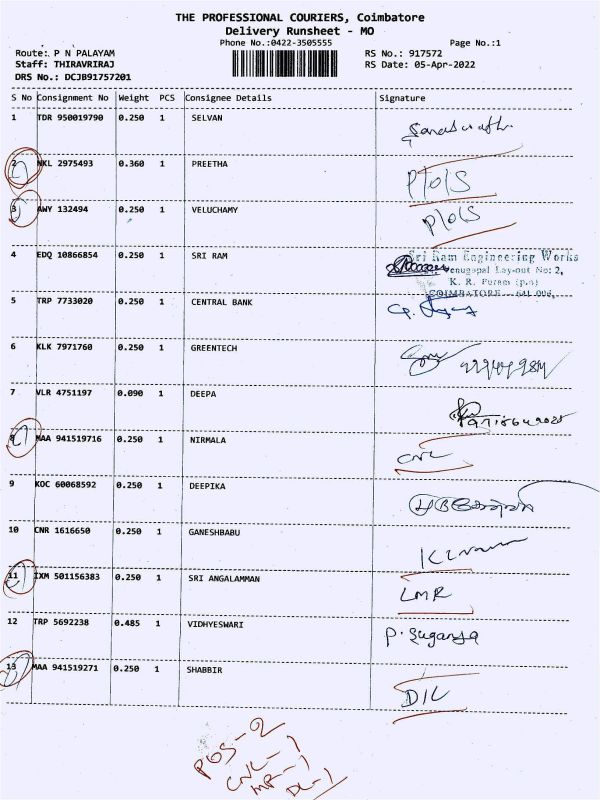 THE PROFESSIONAL COURIERS, Coimbatore
Delivery Runsheet - MO
Phone No.:0422-3505555 Page No.:1
Route: P N PALAYAM RS No.: 917572
Staff: THIRAVRIRAJ RS Date: 05-Apr-2022
DRS No.: DCJB91757201
S No Consignment No Weight PCS Consignee Details Signature
1 TDR 950019790 0.250 1 SELVAN
2 NKL 2975493 0.360 1 PREETHA
3 AWY 132494 0.250 1 VELUCHAMY
4 EDQ 10866854 0.250 1 SRI RAM
Sri Ram Engineering Works
Venugopal Lay-out No: 2,
K. R. Puram (p.o)
COIMBATORE - 641 006.
5 TRP 7733020 0.250 1 CENTRAL BANK
6 KLK 7971760 0.250 1 GREENTECH
7 VLR 4751197 0.090 1 DEEPA
8 MAA 941519716 0.250 1 NIRMALA CNL
9 KOC 60068592 0.250 1 DEEPIKA
10 CNR 1616650 0.250 1 GANESHBABU
11 IXM 501156383 0.250 1 SRI ANGALAMMAN LMR
12 TRP 5692238 0.485 1 VIDHYESWARI P. Suganya
13 MAA 941519271 0.250 1 SHABBIR DIL
POS-2
CNL-1
MR-1
DL-1